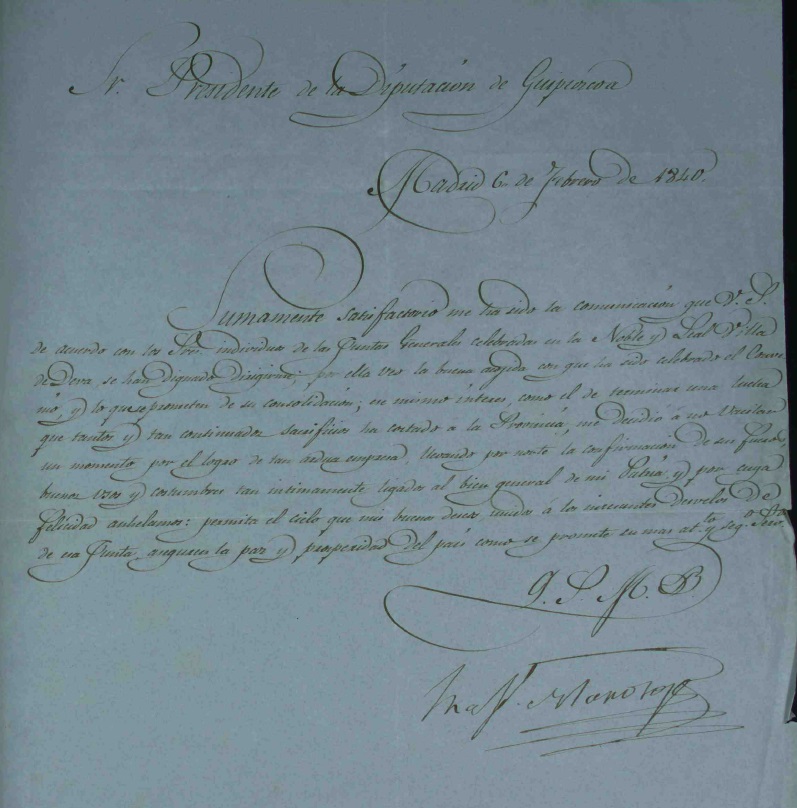 Sr. Presidente de la Diputación de Guipuzcoa
Madrid 6 de Febrero de 1840.
Sumamente satisfactorio me ha sido la comunicación que V. S.
de acuerdo con los Sres. individuos de las Juntas Generales celebradas en la Noble y Leal Villa
de Deva, se han dignado dirigirme; por ella veo la buena acojida con que ha sido celebrado el Conve
nio, y lo que se prometen de su consolidación; en mismo interes, como el de terminar una lucha
que tantos y tan continuados sacrificios ha costado a la Provincia, me decidió á no vacilar
un momento por el logro de tan ardua empresa, llevando por norte la confirmación de sus fueros,
buenos usos y costumbres tan intimamente ligados al bien general de mi Patria, y por cuya
felicidad anhelamos: permita el cielo que mis buenos deseos, unidos á los incesantes desvelos de
esa Junta, aseguren la paz y prosperidad del país como se promete su mas at.to y seg.o
Q. S. M. B
Raf. Maroto